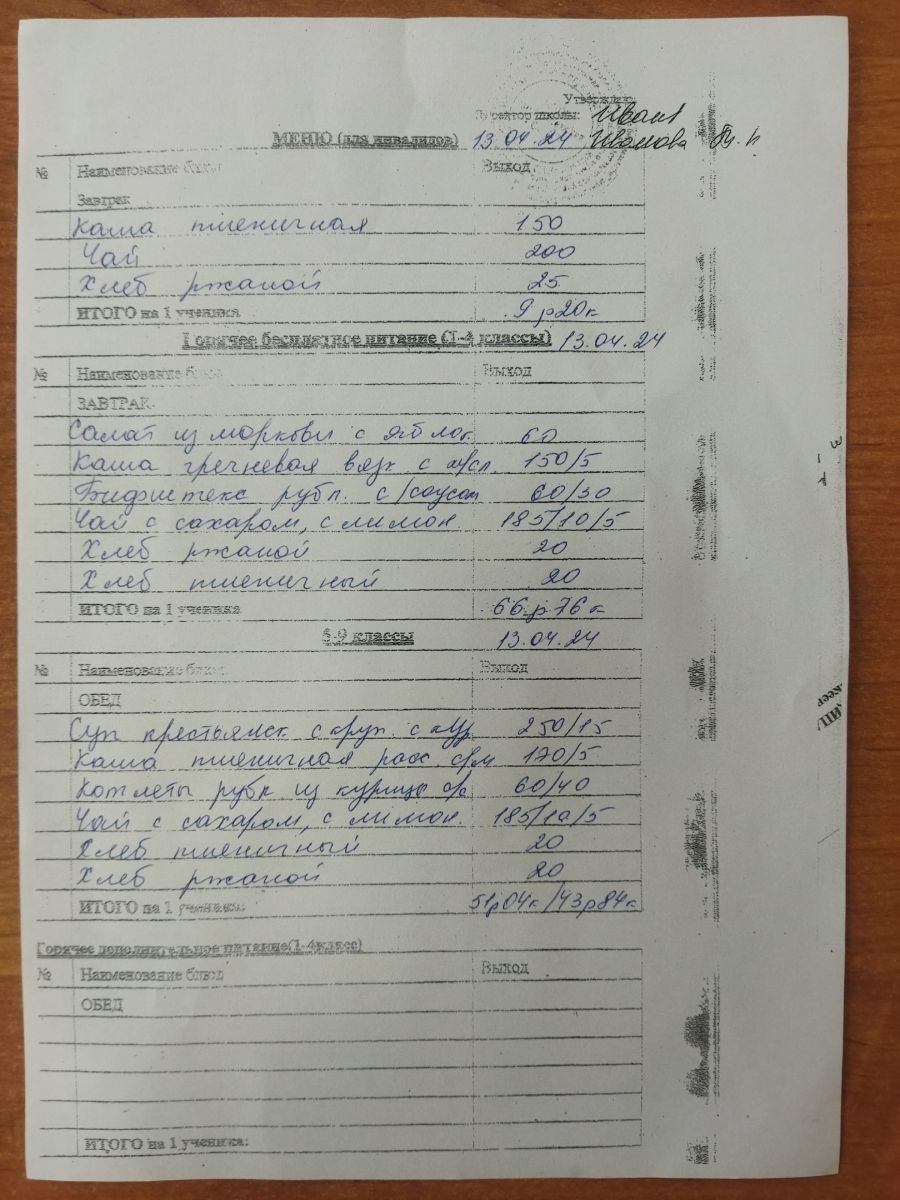 Утверждаю
Директор школы:
МЕНЮ (для инвалидов) 13.04.24 Иванова
№ Наименование блюд Выход
Завтрак
Каша пшеничная 150
Чай 200
Хлеб ржаной 25
ИТОГО на 1 ученика 9р20к
Горячее бесплатное питание (1-4 классы) 13.04.24
№ Наименование блюд Выход
ЗАВТРАК
Салат из моркови с яблок 60
Каша гречневая вязк с м/сл. 150/5
Бифштекс рубл. с/соусом 60/30
Чай с сахаром, с лимон. 185/10/5
Хлеб ржаной 20
Хлеб пшеничный 20
ИТОГО на 1 ученика 66р76к
5-9 классы 13.04.24
№ Наименование блюд Выход
ОБЕД
Суп крестьянск с круп. с кур. 250/15
Каша пшеничная расс. с/м 170/5
Котлеты рубл. из курицы с/с 60/40
Чай с сахаром, с лимон. 185/10/5
Хлеб пшеничный 20
Хлеб ржаной 20
ИТОГО на 1 ученика: 51р04к/43р84к
Горячее дополнительное питание(1-4класс)
№ Наименование блюд Выход
ОБЕД
ИТОГО на 1 ученика: